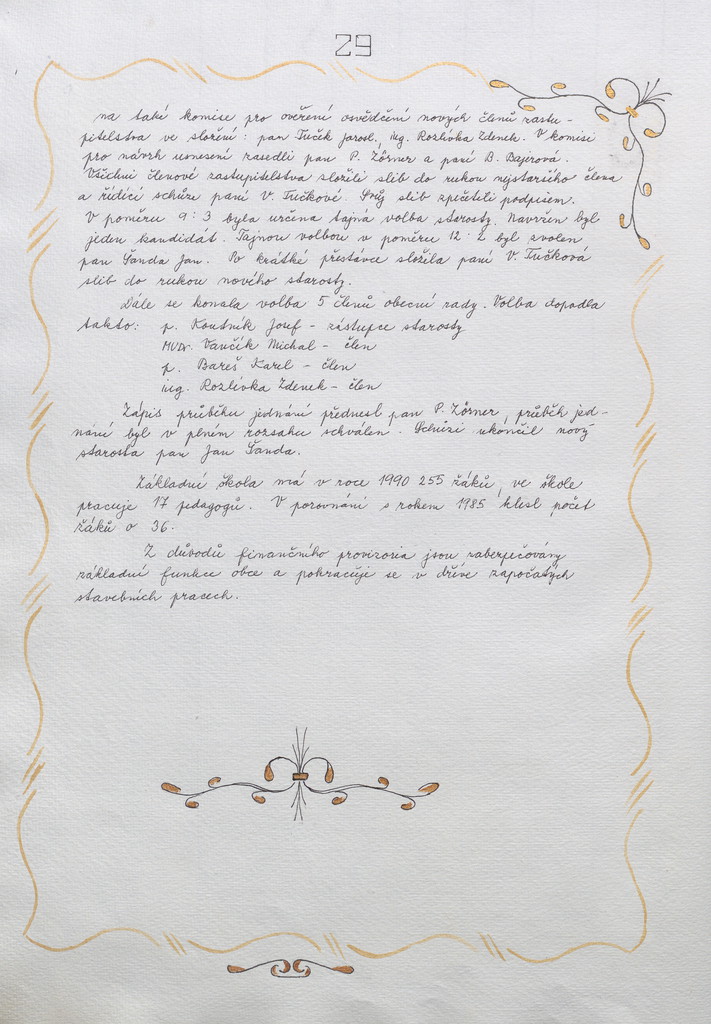 29
na také komise pro ověření osvědčení nových členů zastu-
pitelstva ve složení: pan Tuček Jarosl., ing. Rozlívka Zdenek. V komisi
pro návrh usnesení zasedli pan P. Zörner a paní B. Bajerová.
Všichni členové zastupitelstva složili slib do rukou nejstaršího člena
a řídící schůze paní V. Tučkové. Svůj slib zpečetili podpisem.
V poměru 9:3 byla určena tajná volba starosty. Navržen byl
jeden kandidát. Tajnou volbou v poměru 12:2 byl zvolen
pan Šanda Jan. Po krátké přestávce složila paní V. Tučková
slib do rukou nového starosty.
Dále se konala volba 5 členů obecní rady. Volba dopadla
takto: p. Koutník Josef - zástupce starosty
MVDr. Vančík Michal - člen
p. Bareš Karel - člen
ing. Rozlívka Zdenek - člen
Zápis průběhu jednání přednesl pan P. Zörner, průběh jed-
nání byl v plném rozsahu schválen. Schůzi ukončil nový
starosta pan Jan Šanda.
Základní škola má v roce 1990 255 žáků, ve škole
pracuje 17 pedagogů. V porovnání s rokem 1985 klesl počet
žáků o 36.
Z důvodů finančního provizoria jsou zabezpečovány
základní funkce obce a pokračuje se v dříve započatých
stavebních pracech.